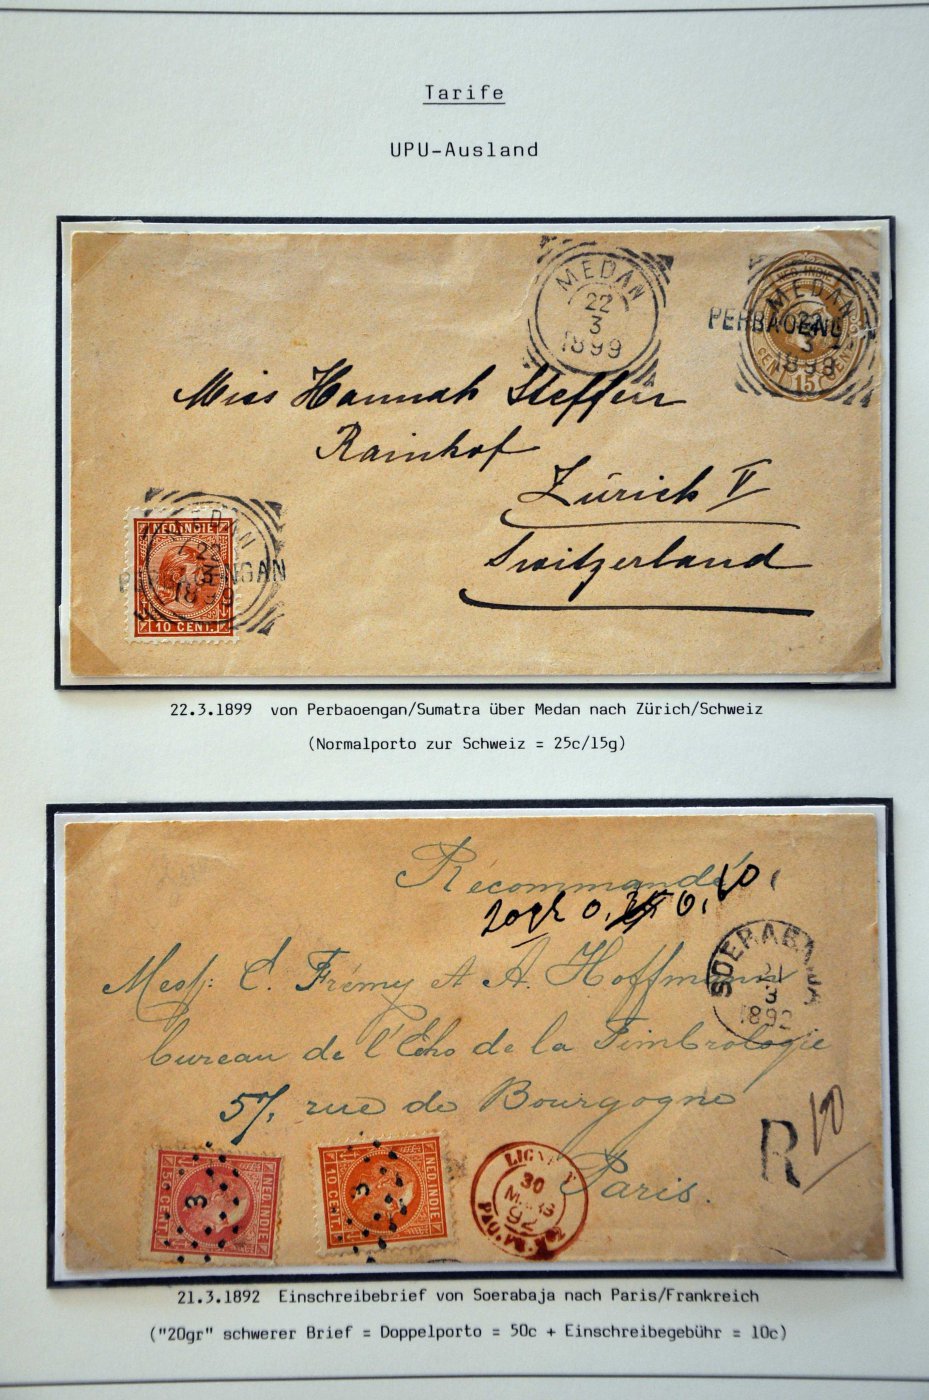 Tarife
UPU-Ausland
MEDAN
22
3
1899
NED. INDIE
MEDAN
22
3
1899
PERBAOENGAN
CENT 15 CENT
Miss Hannah Steffen
Rainhof
Zürich V
Switzerland
NED. INDIE
MEDAN
22
3
1899
PERBAOENGAN
10 CENT.
22.3.1899 von Perbaoengan/Sumatra über Medan nach Zürich/Schweiz
(Normalporto zur Schweiz = 25c/15g)
Récommandé
20gr 0, 0,10
SOERABAJA
21
3
1892
Mess: C. Frémy & A. Hoffmann
bureau de l'Echo de la Timbrologie
57, rue de Bourgogne
Paris.
R 10
NED. INDIE
50 CENT.
3
NED. INDIE
10 CENT.
3
LIGNE
30
MARS
92
PAQ. FR.
21.3.1892 Einschreibebrief von Soerabaja nach Paris/Frankreich
("20gr" schwerer Brief = Doppelporto = 50c + Einschreibegebühr = 10c)